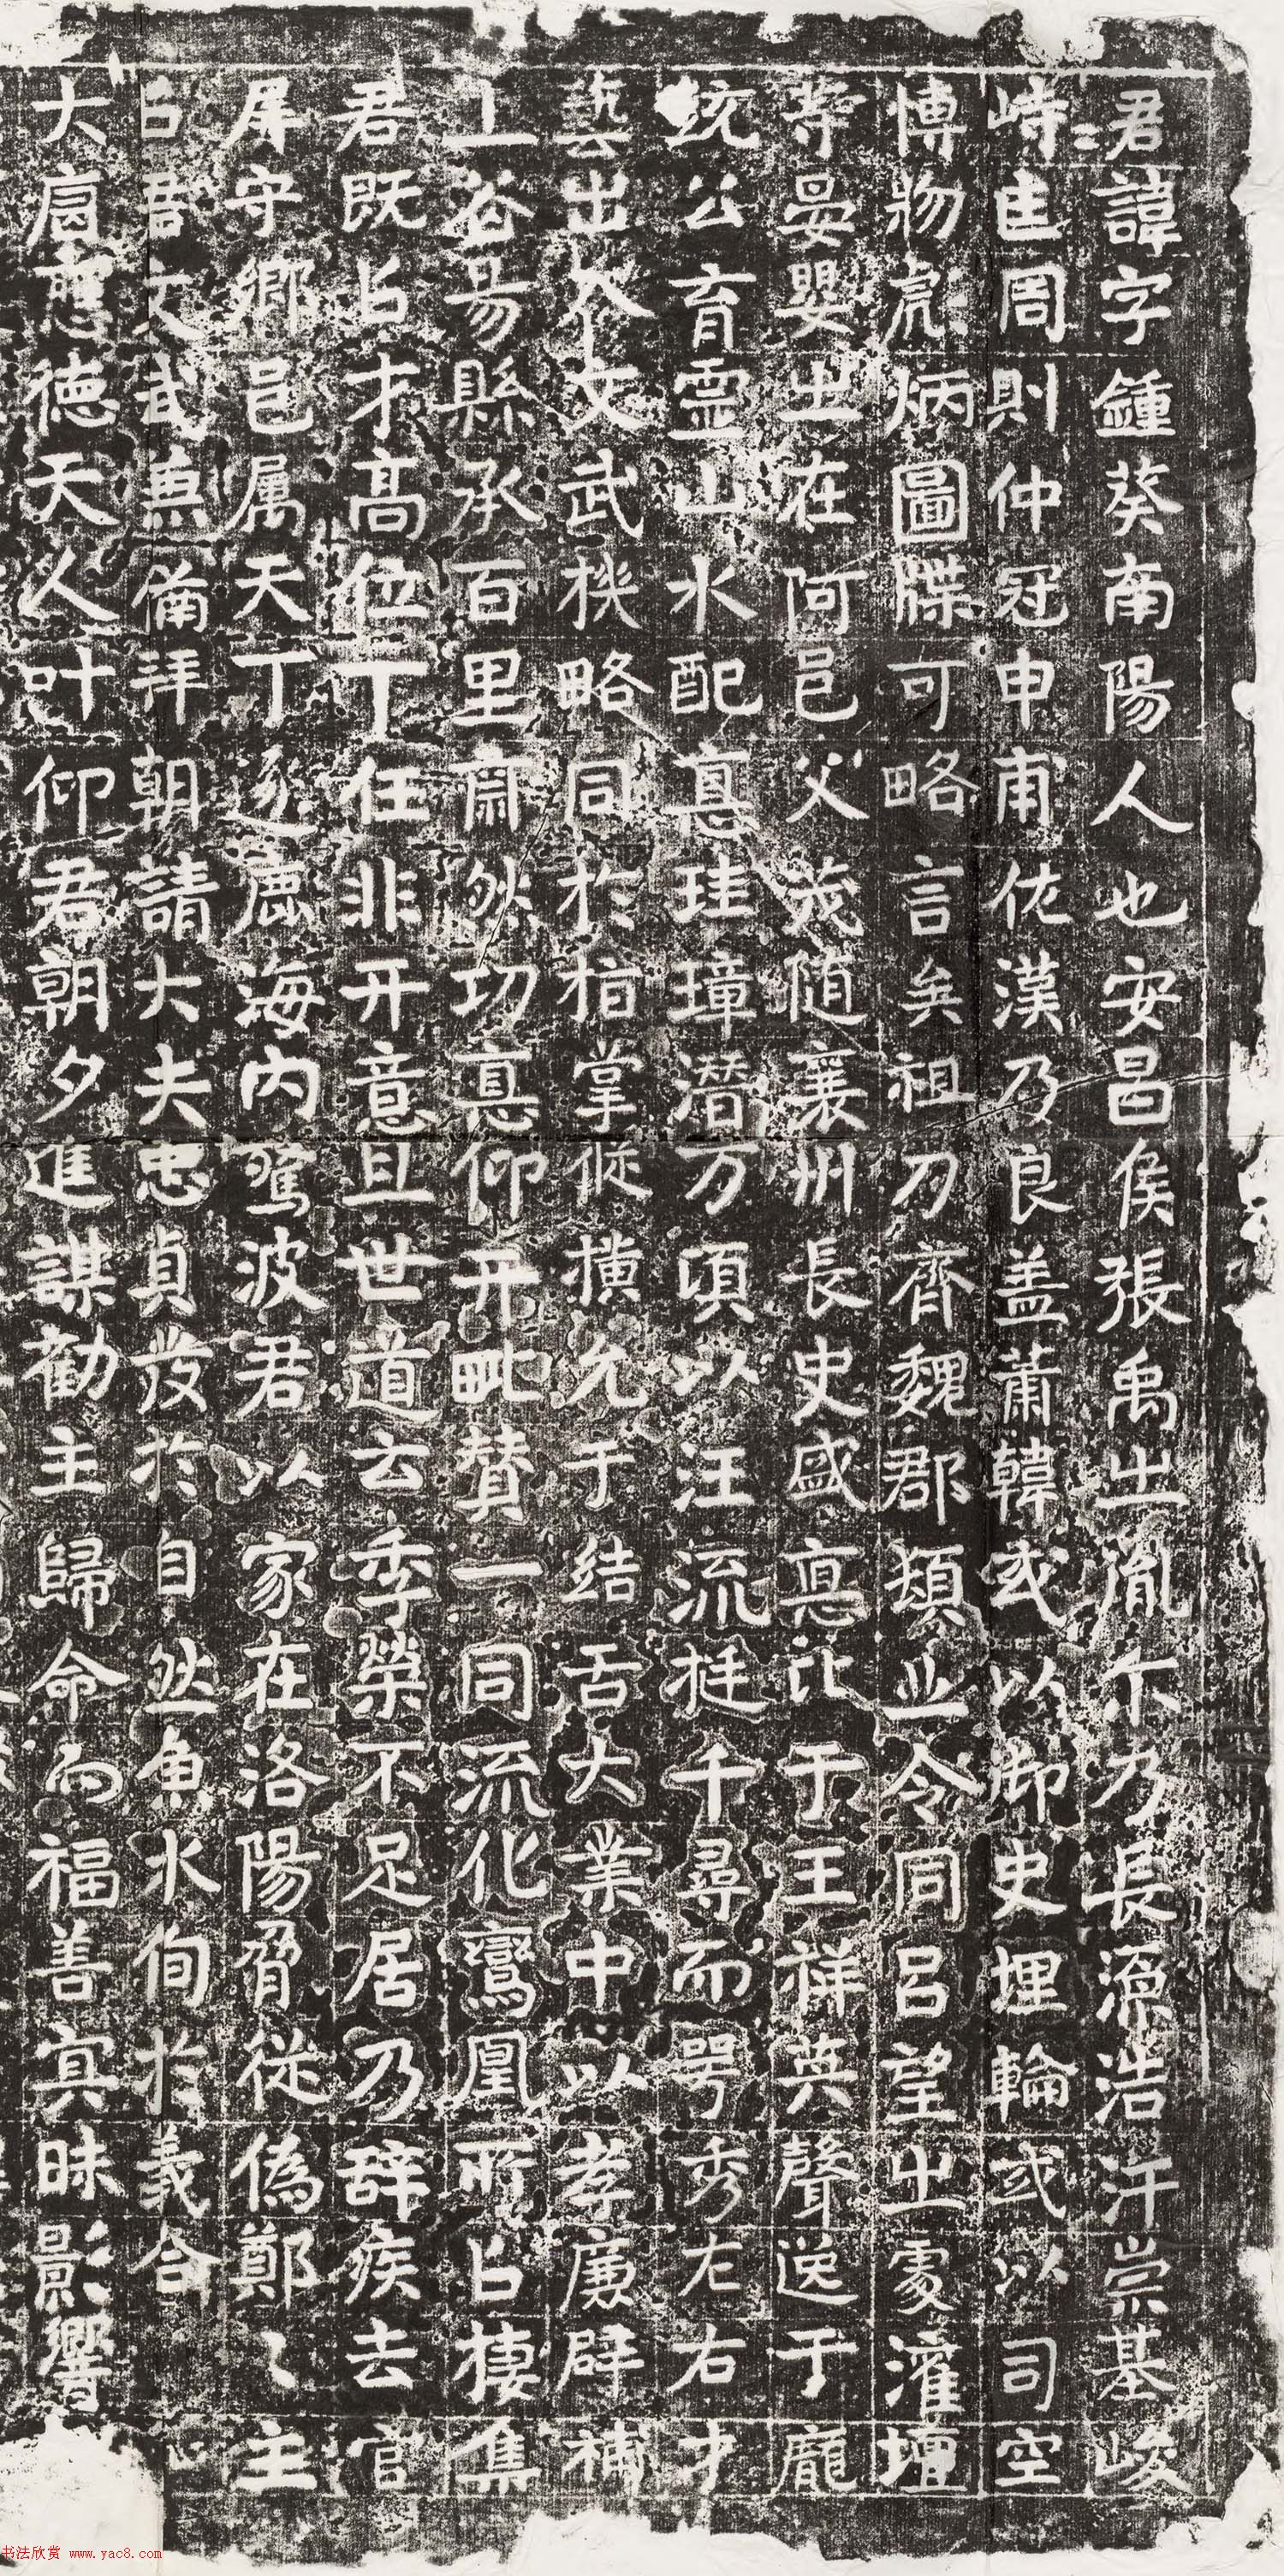 君諱字鍾葵南陽人也安昌侯張禹之胤尒乃長源浩汗崇基峻
峙在周則仲冠申甫佐漢乃良盖蕭韓或以御史埋輪或以司空
博物虎炳圖牒可略言矣祖刀齊魏郡頓丘令同呂望之處灌壇
等晏嬰之在阿邑父茂随襄州長史盛惪比于王祥英聲送于龐
统公育靈山水配惪珪璋潛万頃以汪流挺千尋而咢秀左右才
藝出入文武機略同於指掌従橫允于结舌大業中以孝廉辟補
上谷易縣丞百里肅然功惪仰开毗賛一同流化鸞凰所以棲集
君既以才高位下任非开意且世道云季榮不足居乃辞疾去官
屏守鄉邑属天下逐鹿海内驚波君以家在洛陽脅従偽鄭〻主
以君文武兼備拜朝請大夫忠貞发於自然魚水徇於義合
大㝢應德天人叶仰君朝夕進謀勸主歸命而福善寘昧影響
书法欣赏 www.yac8.com